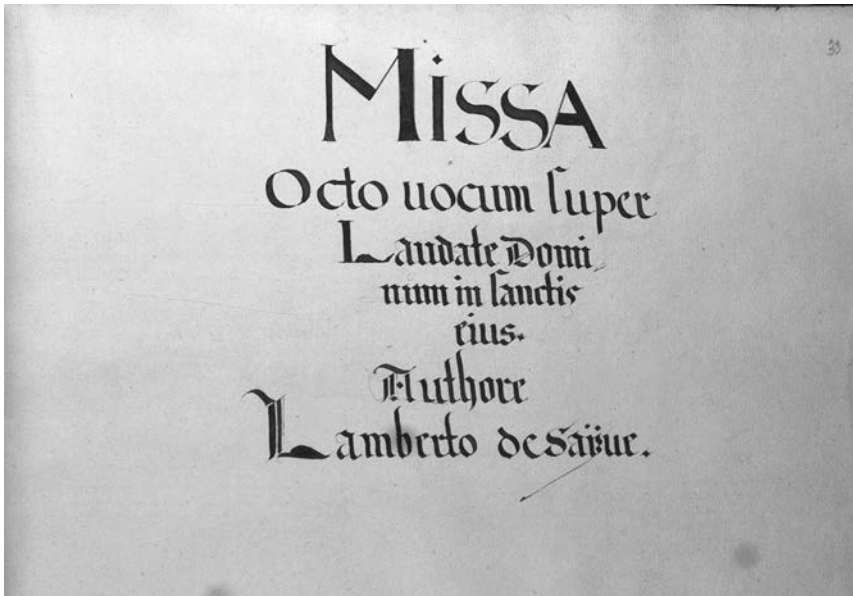 30
Missa
Octo uocum ſuper
Laudate Domi
num in ſanctis
eius.
Authore
Lamberto de Saÿue.